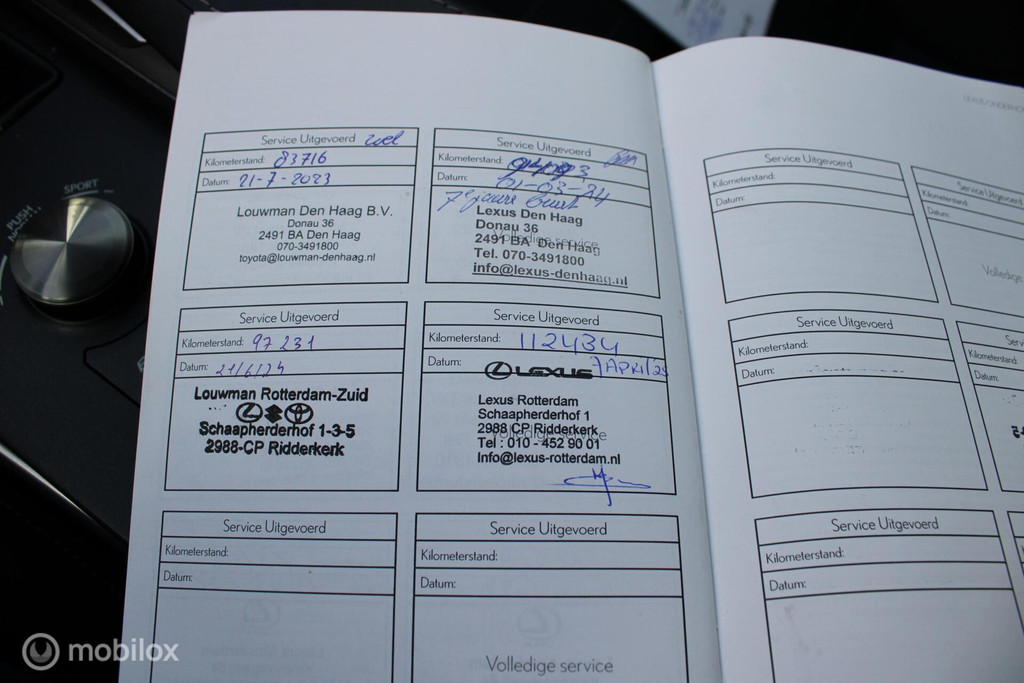 SPORT
PUSH
LEXUS/ONDERHO
Service Uitgevoerd
Kilometerstand: 83716
Datum: 21-7-2023
Louwman Den Haag B.V.
Donau 36
2491 BA Den Haag
070-3491800
toyota@louwman-denhaag.nl
Service Uitgevoerd
Kilometerstand:
Datum: 01-03-24
Lexus Den Haag
Donau 36
Volledige service
2491 BA Den Haag
Tel. 070-3491800
info@lexus-denhaag.nl
Service Uitgevoerd
Kilometerstand: 97231
Datum: 21/6/24
Louwman Rotterdam-Zuid
Schaapherderhof 1-3-5
2988-CP Ridderkerk
Service Uitgevoerd
Kilometerstand: 112434
Datum: 7 APRIL/25
LEXUS
Lexus Rotterdam
Schaapherderhof 1
2988 CP Ridderkerk
Volledige service
Tel : 010 - 452 90 01
Info@lexus-rotterdam.nl
Service Uitgevoerd
Kilometerstand:
Datum:
Service Uitgevoerd
Kilometerstand:
Datum:
Volledige service
Service Uitgevoerd
Kilometerstand:
Datum:
Service Uitgevoerd
Kilometerstand:
Datum:
Volledige
Service Uitgevoerd
Kilometerstand:
Datum:
Serv
Kilometerstand:
Datum:
Service Uitgevoerd
Kilometerstand:
Datum:
mobilox